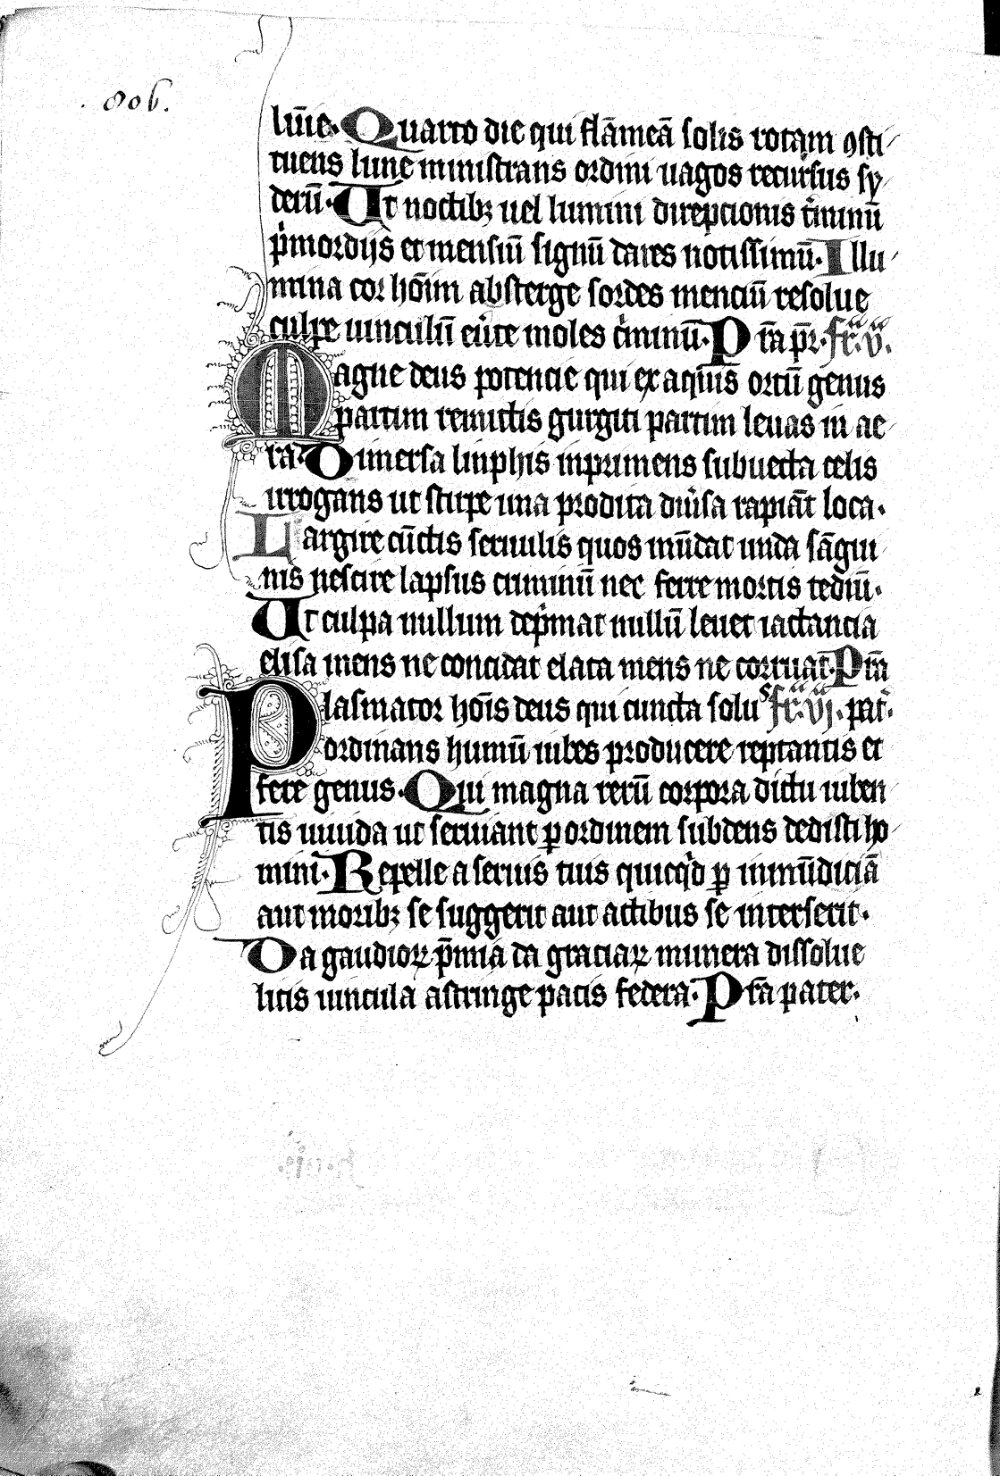 .806.
lūīe. Quarto die qui flāmeā solis rotam ꝯsti⸗
tuens lune ministrans ordini uagos recursus sy⸗
derū. Ut noctibꝫ uel lumini direpcionis t̾minū
p̾mordijs et mensiū signū dares notissimū. Illu⸗
mina cor hoīm absterge sordes menciū resolue
culpe uinculū eu̾te moles c̾minū. P rā pr̄. fr̄. v̄.
Magne deus potencie qui ex aquis ortū genus
partim remittis gurgiti partim leuas in ae⸗
ra. Dimersa limphis inprimens subuecta celis
irrogans ut stirpe una prodita diu̾sa rapiāt loca.
Largire cūctis seruulis quos mūdat unda sāgui
nis nescire lapsus criminū nec ferre mortis tediū.
Ut culpa nullum dep̾mat nullū leuet iactancia
elisa mens ne concidat elata mens ne corruat. Prā
Plasmator hoīs deus qui cuncta solus fr̄. vj. pat̾.
ordinans humū iubes producere reptantis et
fere genus. Qui magna rerū corpora dictu iuben⸗
tis uiuida ut seruiant ꝑ ordinem subdens dedisti ho⸗
mini. Repelle a seruis tuis quicq̾d ꝑ inmūdiciā
aut moribꝫ se suggerit aut actibus se interserit.
Da gaudioꝝ p̄mia da graciaꝝ munera dissolue
litis uincula astringe pacis federa. P rā pater.